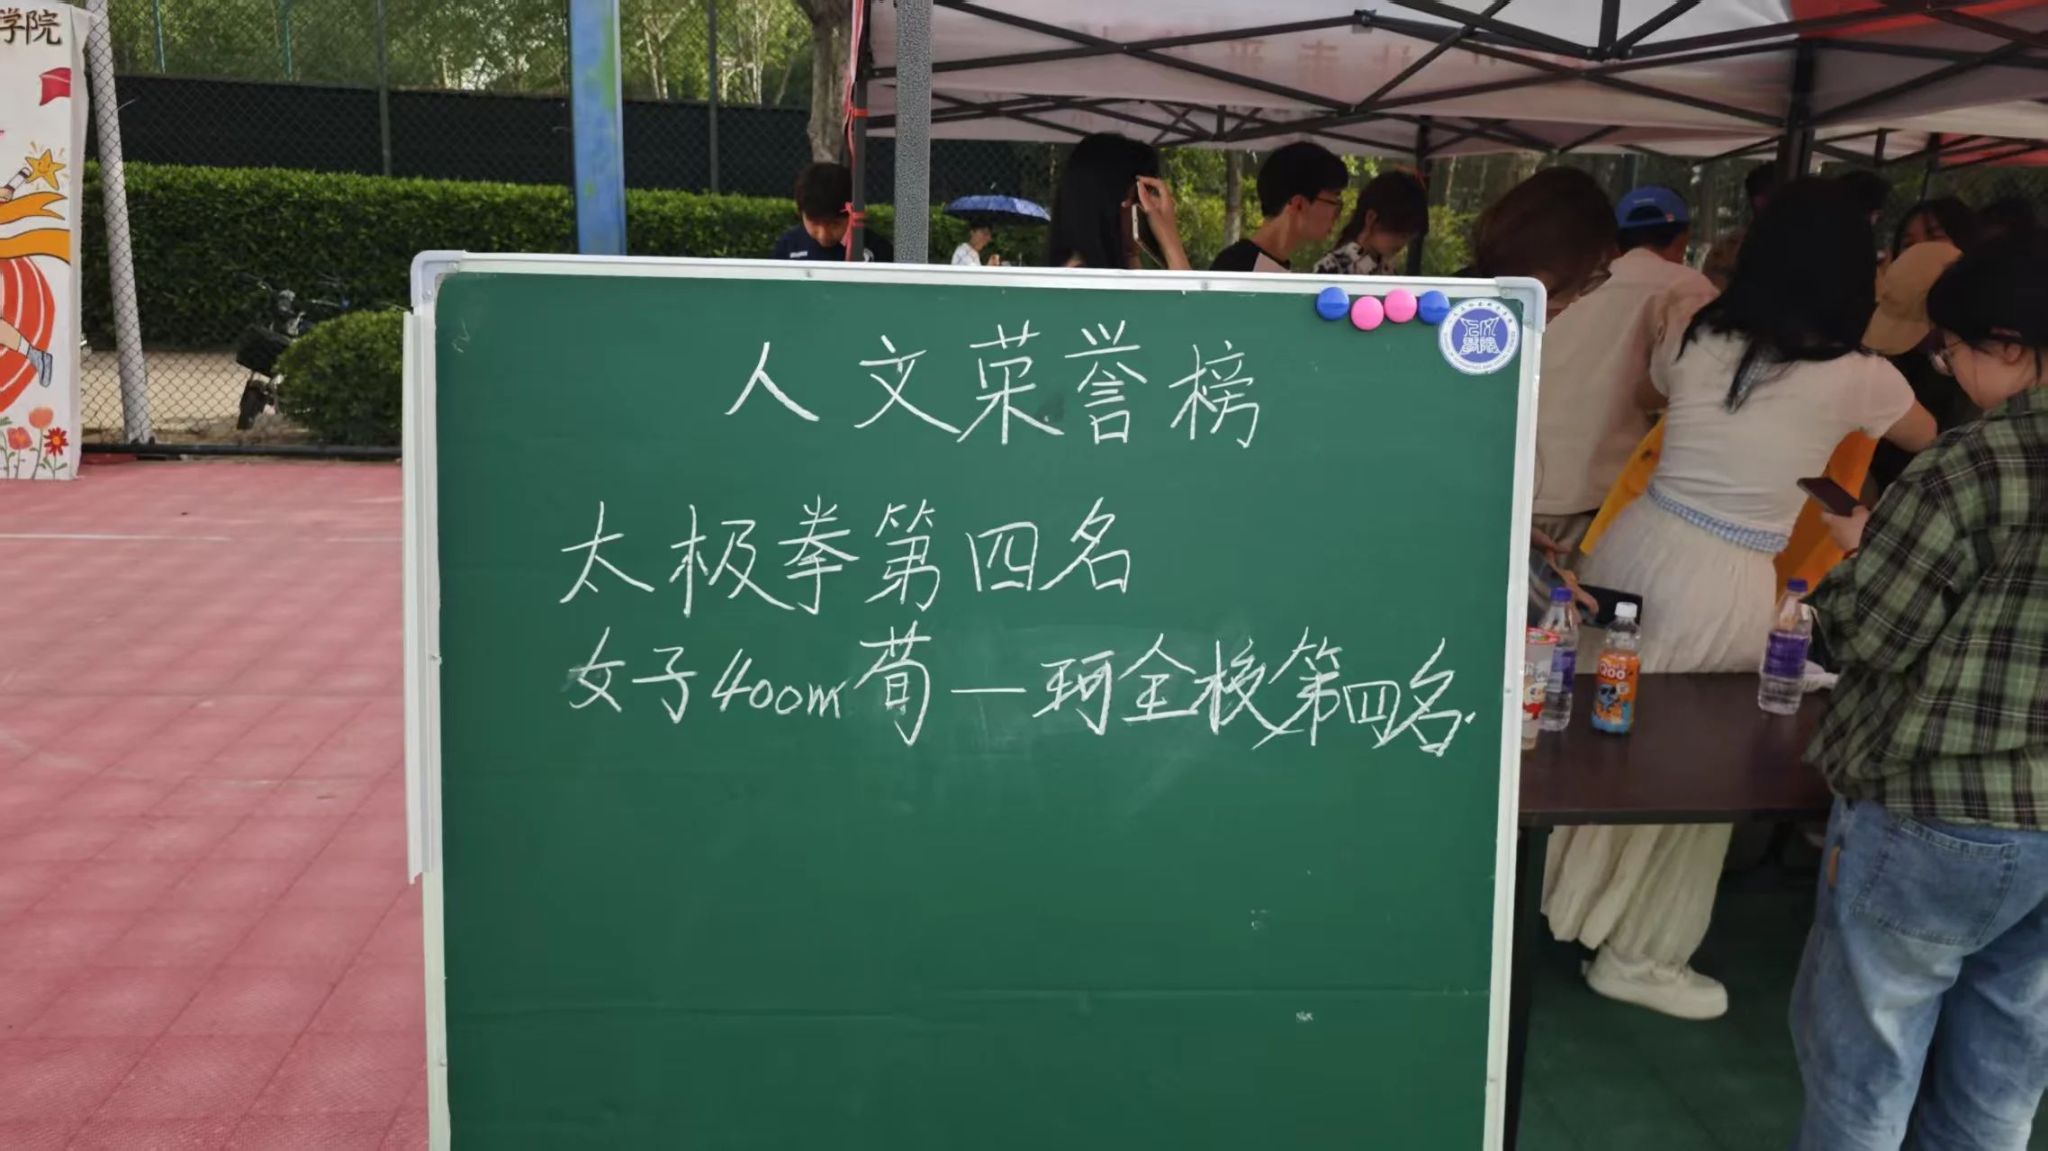 学院
人文荣誉榜
太极拳第四名
女子400m荀一珂全校第四名.
Qoo